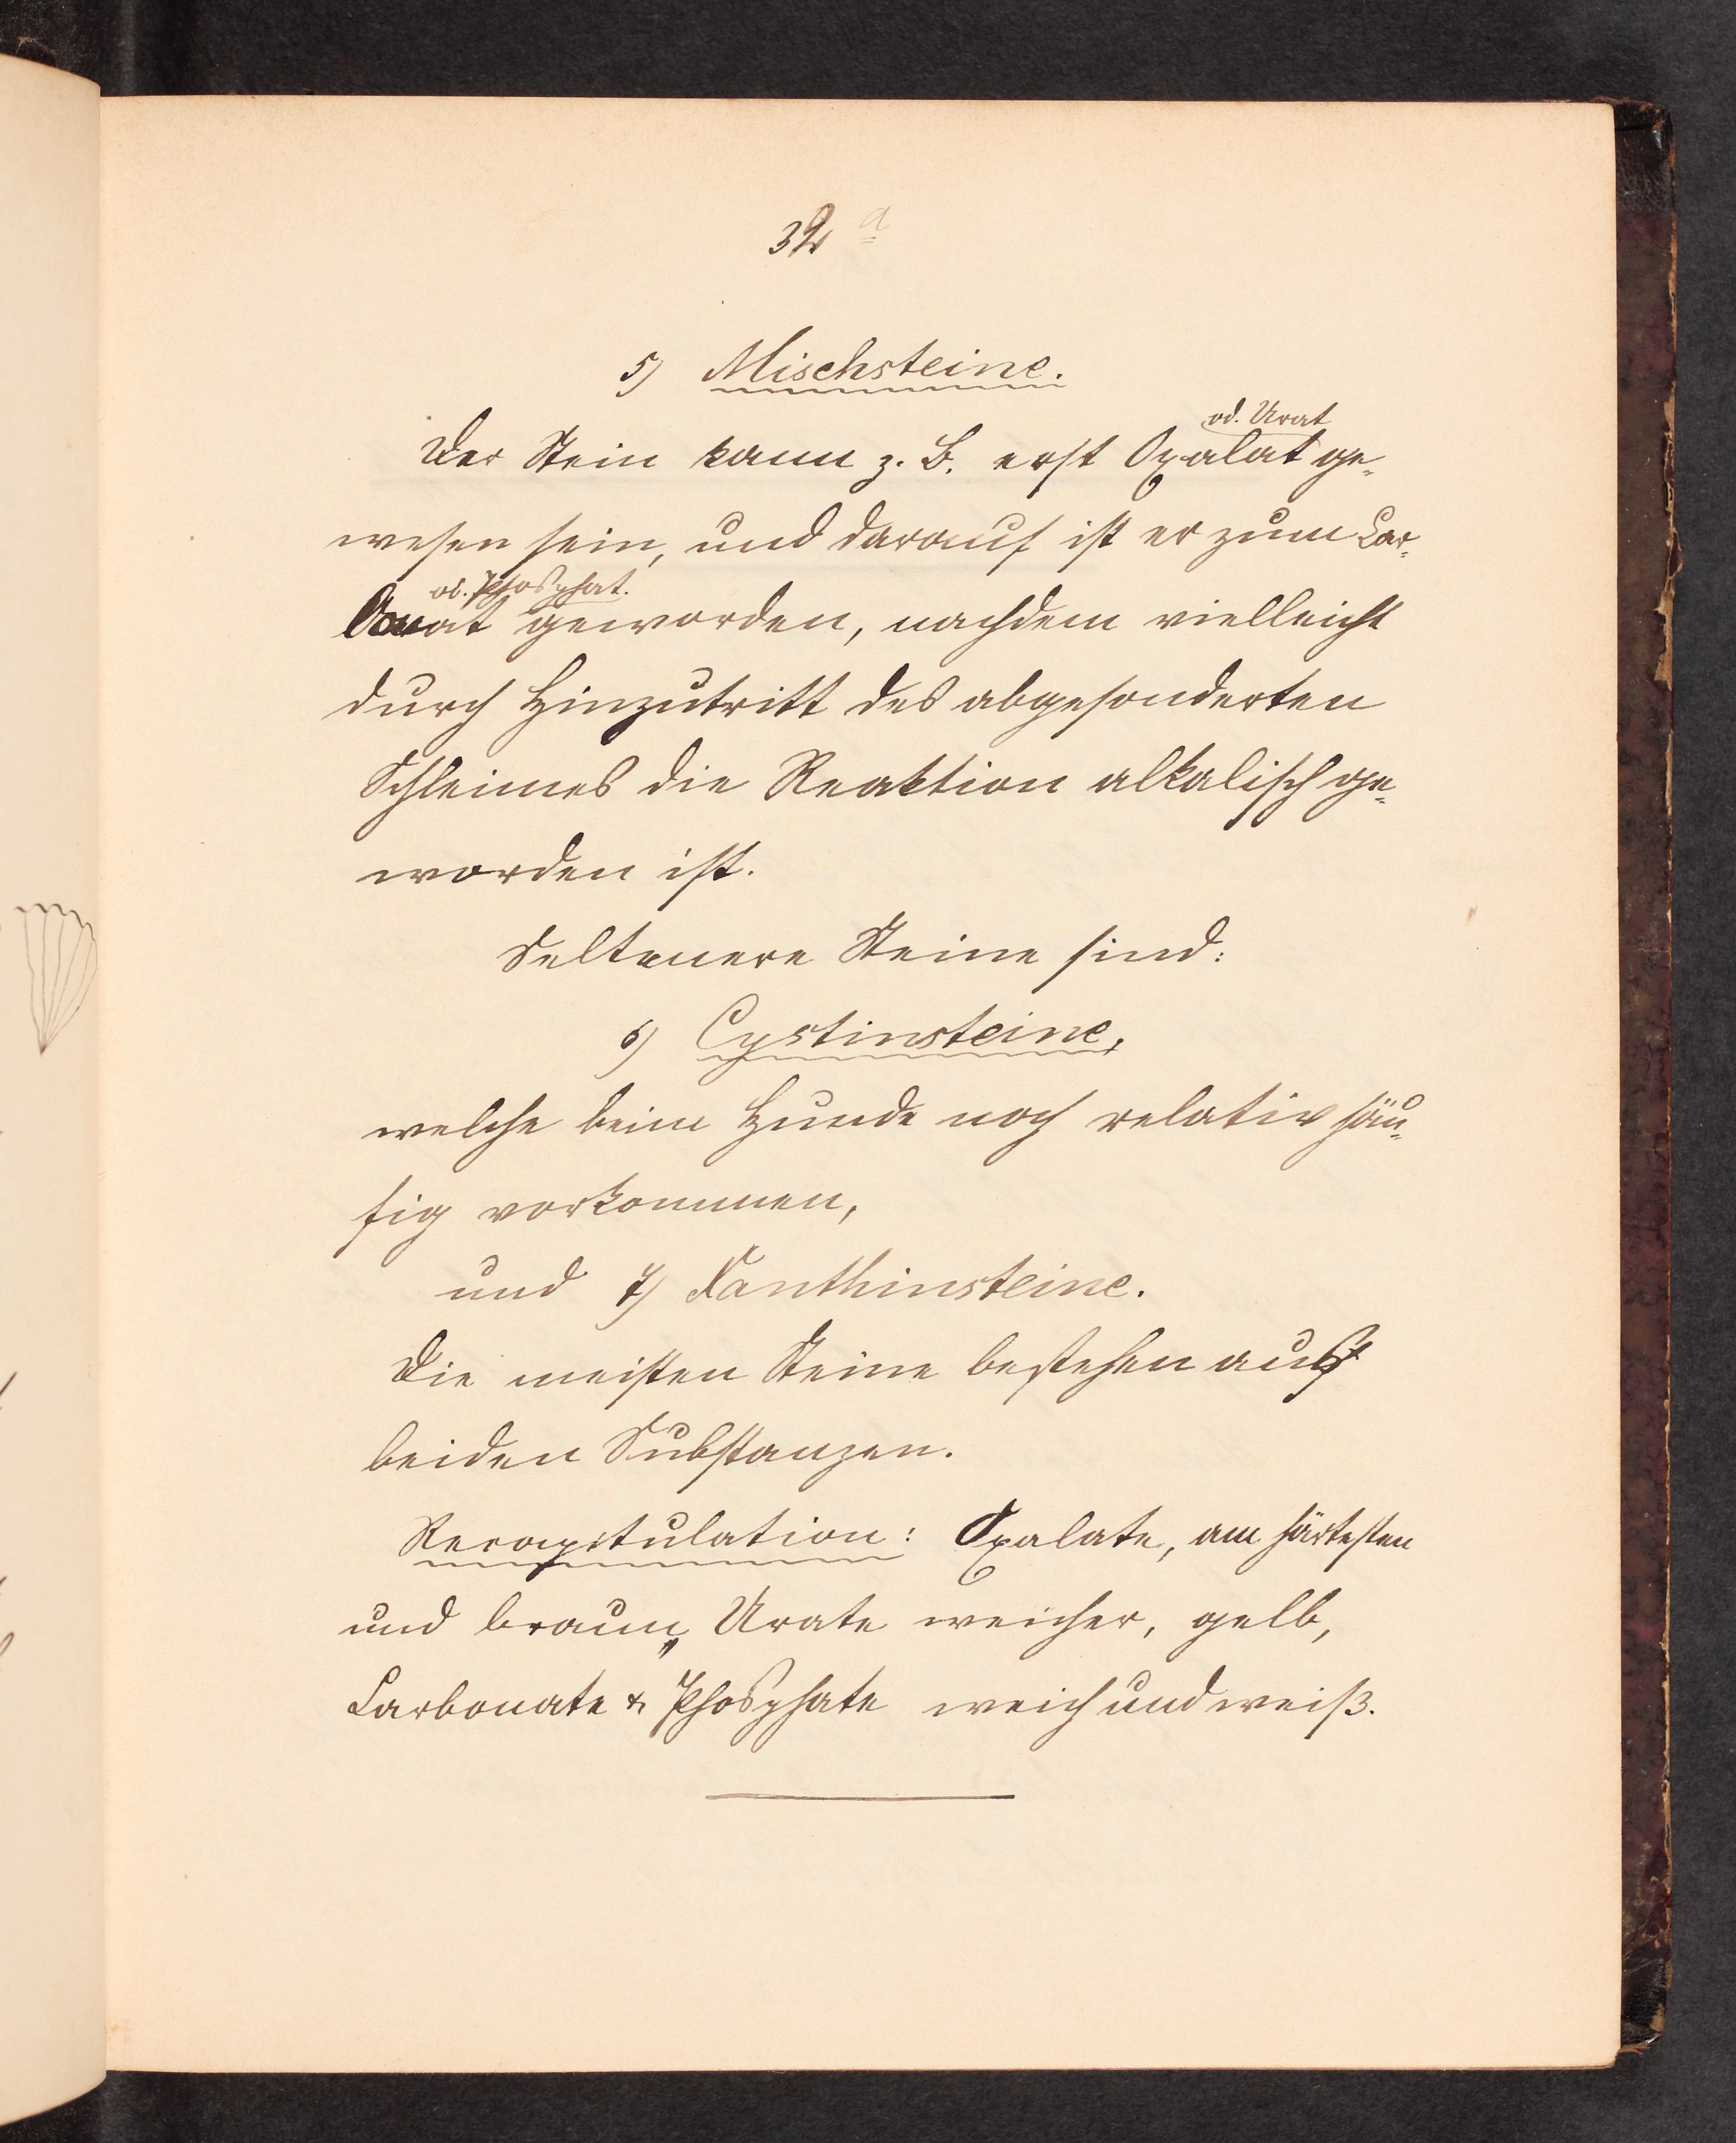 32 a
5) Mischsteine.
od. Urat
Der Stein kann z. B. erst Oxalat ge-
wesen sein, und darauf ist er zum Car-
od. Phosphat.
bonat geworden, nachdem vielleicht
durch Hinzutritt des abgesonderten
Schleimes die Reaktion alkalisch ge-
worden ist.
Seltenere Steine sind:
6) Cystinsteine,
welche beim Hunde noch relativ häu-
fig vorkommen,
und 7) Xanthinsteine.
Die meisten Steine bestehen aus
beiden Substanzen.
Recapitulation: Oxalate, am härtesten
und braun, Urate weicher, gelb,
Carbonate & Phosphate weich und weiß.